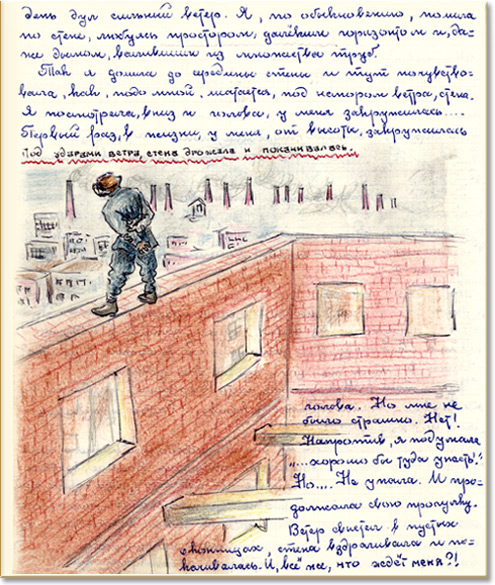 день дул сильный ветер. Я, по обыкновению, пошла
по стене, любуясь простором, далёким горизонтом и, да-
же дымом, валившим из множества труб.
Так я дошла до средины стены и тут почувство-
вала, как, подо мной, шатается, под напором ветра, стена.
Я посмотрела, вниз и голова, у меня закружилась....
Первый раз, в жизни, у меня, от высоты, закружилась
Под ударами ветра, стена дрожала и покачивалась.
голова. Но мне не
было страшно. Нет!
Напротив, я подумала
"...хорошо бы туда упасть!"
Но.... Не упала. И про-
должала свою прогулку.
Ветер свистел в пустых
оконницах, стена вздрагивала и по-
качивалась. И, всё же, что ждёт меня?!